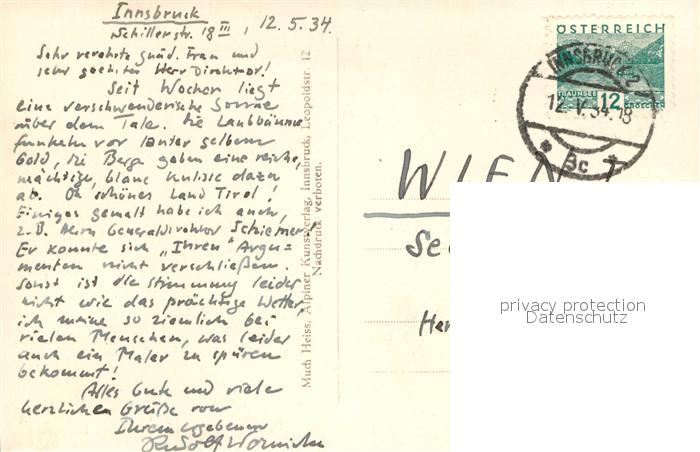 Innsbruck
Schillerstr. 18 III, 12.5.34.
Sehr verehrte gnäd. Frau und
sehr geehrter Herr Direktor!
Seit Wochen liegt
eine verschwenderische Sonne
über dem Tale. Die Laubbäume
funkeln vor lauter gelbem
Gold, die Berge geben eine reiche,
mächtige, blaue Kulisse dazu
ab. Oh schönes Land Tirol!
Einiges gemalt habe ich auch,
z.B. Herrn Generaldirektor
Er konnte sich „Ihren" Argu-
menten nicht verschließen.
Sonst ist die Stimmung leider
nicht wie das prächtige Wetter,
ich meine so ziemlich bei
vielen Menschen, was leider
auch ein Maler zu spüren
bekommt!
Alles Gute und viele
herzlichen Grüße von
Ihrem ergebenen
Rudolf
Much Heiss, Alpiner Kunstverlag, Innsbruck, Leopoldstr 12
Nachdruck verboten.
ÖSTERREICH
TRAUNSEE
12
GROSCHEN
INNSBRUCK 2
12.V.34.18
* 3c
WIEN
Her
privacy protection
Datenschutz